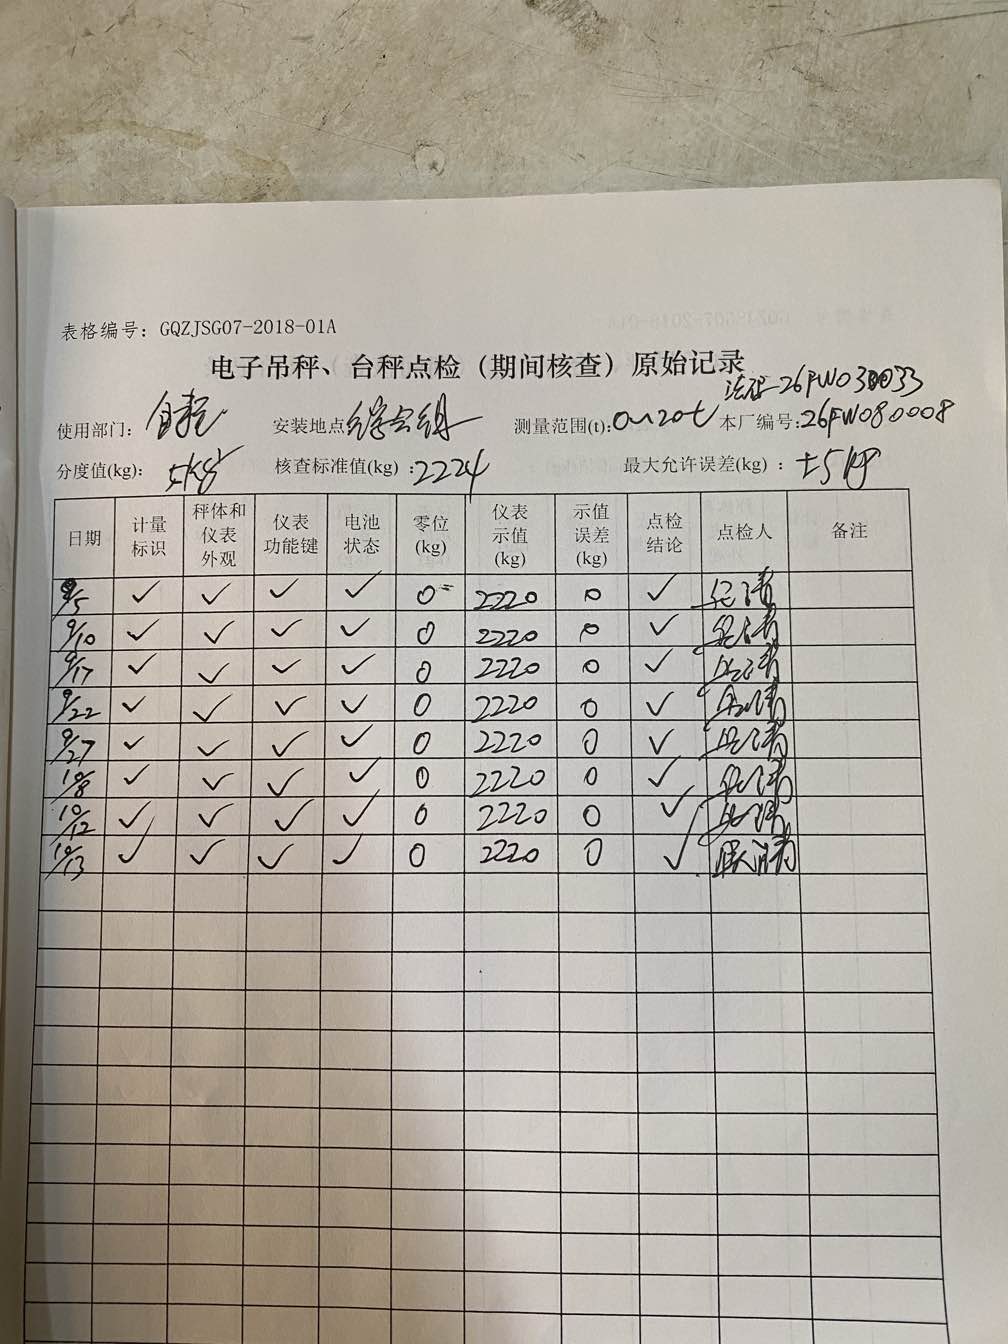 表格编号：GQZJSG07-2018-01A
电子吊秤、台秤点检（期间核查）原始记录
26FW03 033
使用部门： 安装地点 综合组 测量范围(t):0~20t 本厂编号:26FW080008
分度值(kg): 5kg 核查标准值(kg) :2224 最大允许误差(kg) : ±5kg
日期 计量标识 秤体和仪表外观 仪表功能键 电池状态 零位(kg) 仪表示值(kg) 示值误差(kg) 点检结论 点检人 备注
9/5 ✓ ✓ ✓ ✓ 0 2220 0 ✓
9/10 ✓ ✓ ✓ ✓ 0 2220 0 ✓
9/17 ✓ ✓ ✓ ✓ 0 2220 0 ✓
9/22 ✓ ✓ ✓ ✓ 0 2220 0 ✓
9/27 ✓ ✓ ✓ ✓ 0 2220 0 ✓
10/8 ✓ ✓ ✓ ✓ 0 2220 0 ✓
10/12 ✓ ✓ ✓ ✓ 0 2220 0 ✓
10/13 ✓ ✓ ✓ ✓ 0 2220 0 ✓